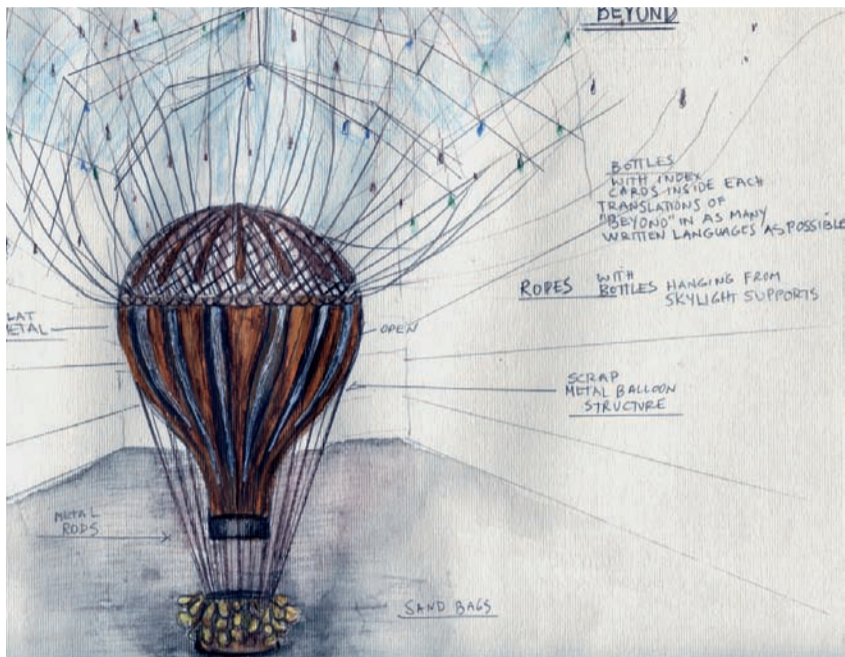 BEYOND
BOTTLES
WITH INDEX
CARDS INSIDE EACH
TRANSLATIONS OF
"BEYOND" IN AS MANY
WRITTEN LANGUAGES AS POSSIBLE
ROPES WITH
BOTTLES HANGING FROM
SKYLIGHT SUPPORTS
LAT
ETAL
OPEN
SCRAP
METAL BALLOON
STRUCTURE
METAL
RODS
SAND BAGS